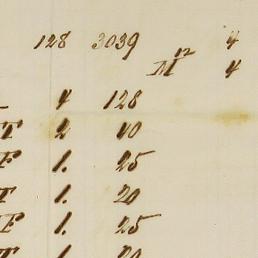 128 3039 4
M12 4
4 128
F 2 40
F 1. 25
F 1. 20
F 1. 25
F 1. 20